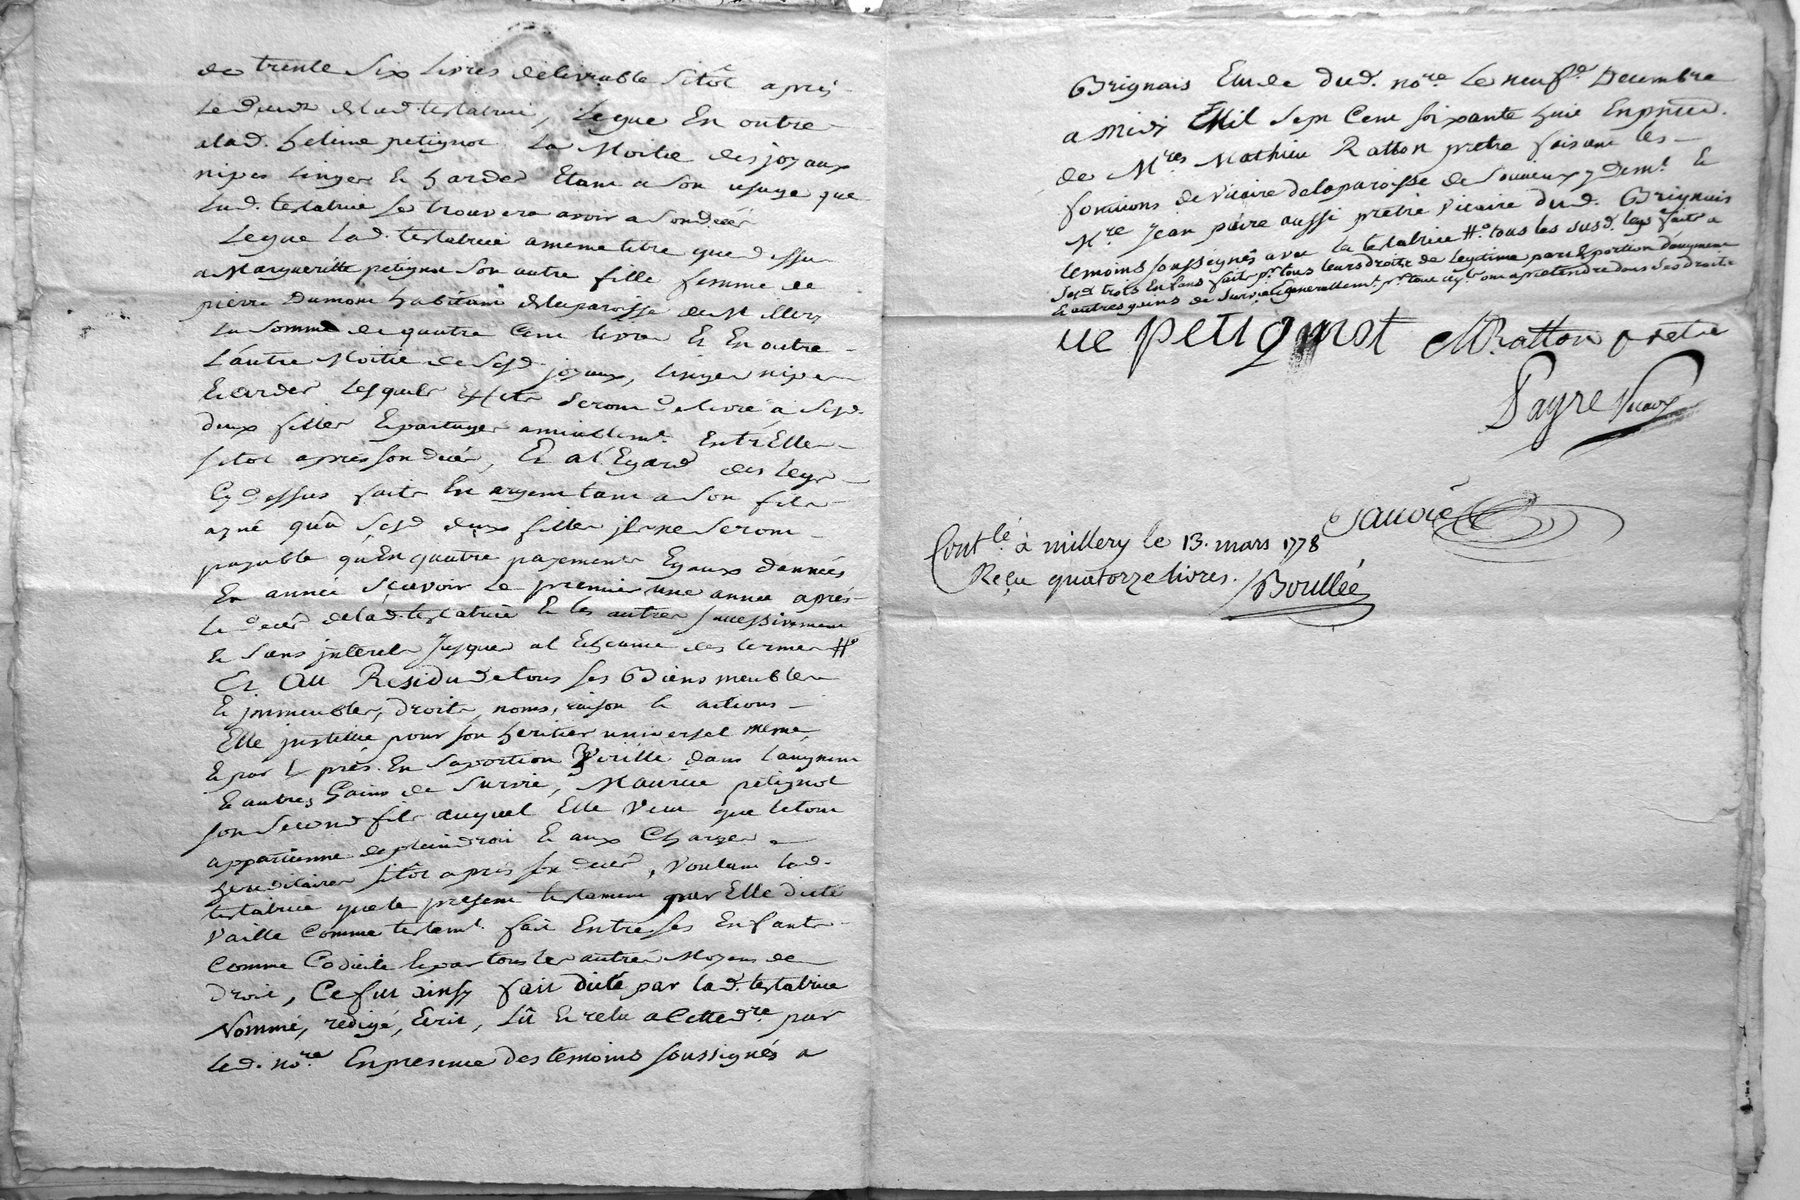 de trente six livres délivrable sitôt après
le deces de lad. testatrice, Legue En outre
alad. helene petignot La Moitié des joyaux
nipes linger & hardes Etant a son usage que
lad. testatrice se trouvera avoir a son decès
Legue lad. testatrice a meme titre que dessus
a Margueritte petignot Son autre fille femme de
pierre Dumont habitant de la paroisse de Millery
La Somme de quatre Cent livres & En outre
L'autre Moitié de sesd. joyaux, linger nipes
& hardes lesquels effets Seront delivré à sesd.
deux filles & partager amiablemt. Entr'Elles
sitot après son decès, Et a l'Egard des legs
Cy dessus faits En argent tant a Son fils
ayné qu'a sesd. deux filles ils ne Seront
payable qu'En quatre payements Egaux d'années
En année Sçavoir le premier une année après
le decès de lad. testatrice & les autres successivement
& Sans interets jusques a l'Echeance des termes #
Et Au Residu de tous ses Biens meubles
& immeubles, droits, noms, raison & actions
Elle institue pour son heritier universel même
& par exprès En sa portion Virille dans l'augment
& autres Gains de Survie, Maurice petignot
son Second fils auquel Elle Veut que le tout
appartienne de plein droit & aux Charges
hereditaires sitôt après son decès, Voulant lad.
testatrice que le present testament par Elle dicté
Vaille Comme testamt. fait Entre ses Enfants
Comme Codicile & par tous les autres Moyens de
droit, Ce fut ainsy fait dicté par lad. testatrice
Nommé, redigé, Ecrit, Lû & relu a Cette dre. par
led. nore. En presence des temoins soussignés a
Brignais Etude dud. nore. Le neuf Decembre
a Midy Mil Sept Cent soixante huit En presce.
de Mres Mathieu Ratton pretre faisant les
fonctions de Vicaire de la paroisse de Soucieux y demt. &
Mre Jean païre aussi pretre Vicaire dud. Brignais
temoins soussignés avec la testatrice # tous les susd. legs faits a
sesd. trois Enfans fait pr. tous leurs droits de Legitime part & portion d'augment
& autres gains de Survie & generallemt. pr. tout ce qu'ont a pretendre dans ses droits
ue petignot MRatton pretre
Payre Vicaire
Contlé. à millery le 13. mars 1778
Reçu quatorze livres. Boullée